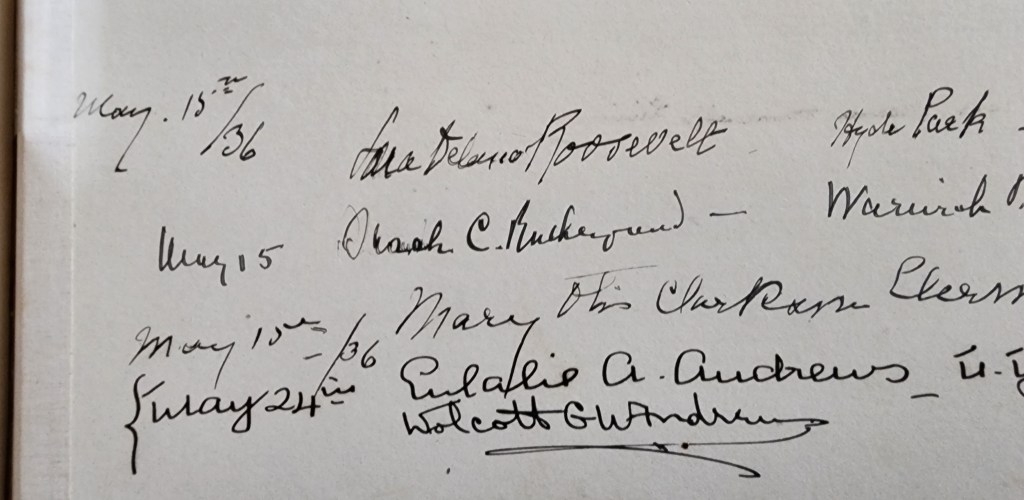 May. 15th/36 Sara Delano Roosevelt Hyde Park
May 15 C. — Warwick
May 15th/36 Mary Otis Clarkson
May 24th Eulalie A. Andrews —
Wolcott G W Andrews